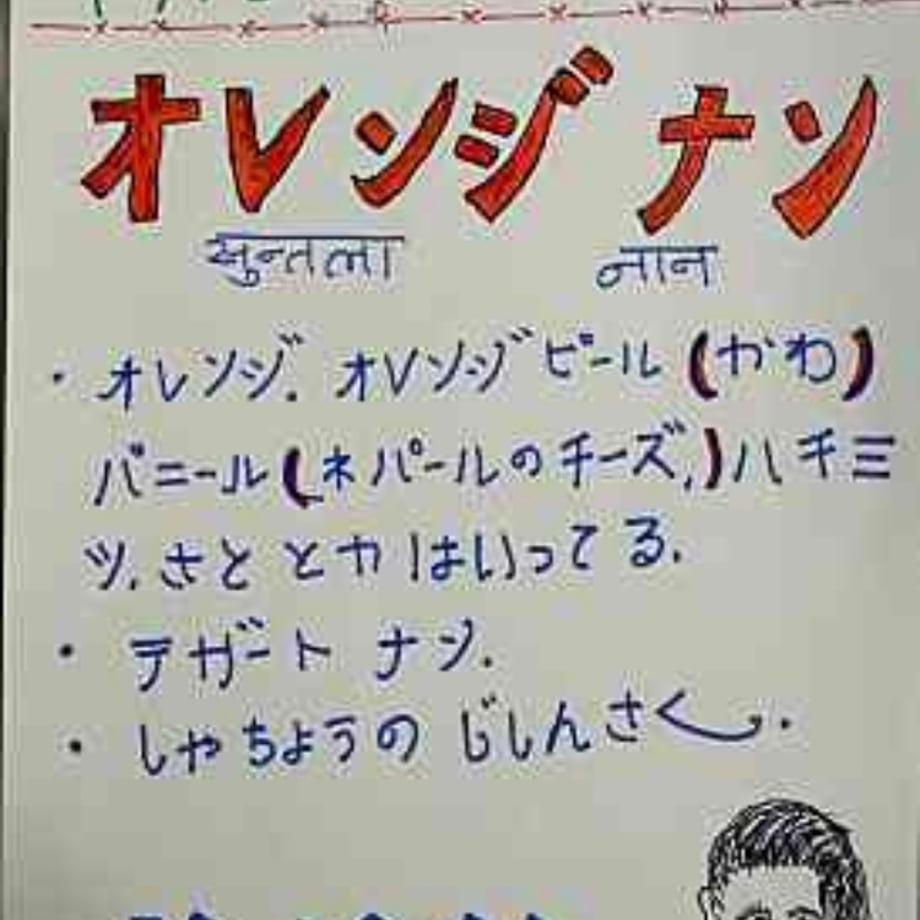 オレンジ ナン
सुन्तला नान
・オレンジ. オレンジピール(かわ)
パニール(ネパールのチーズ,)ハチミ
ツ.さと とか はいってる.
・テザート ナン.
・しゃちょうの じしんさく.